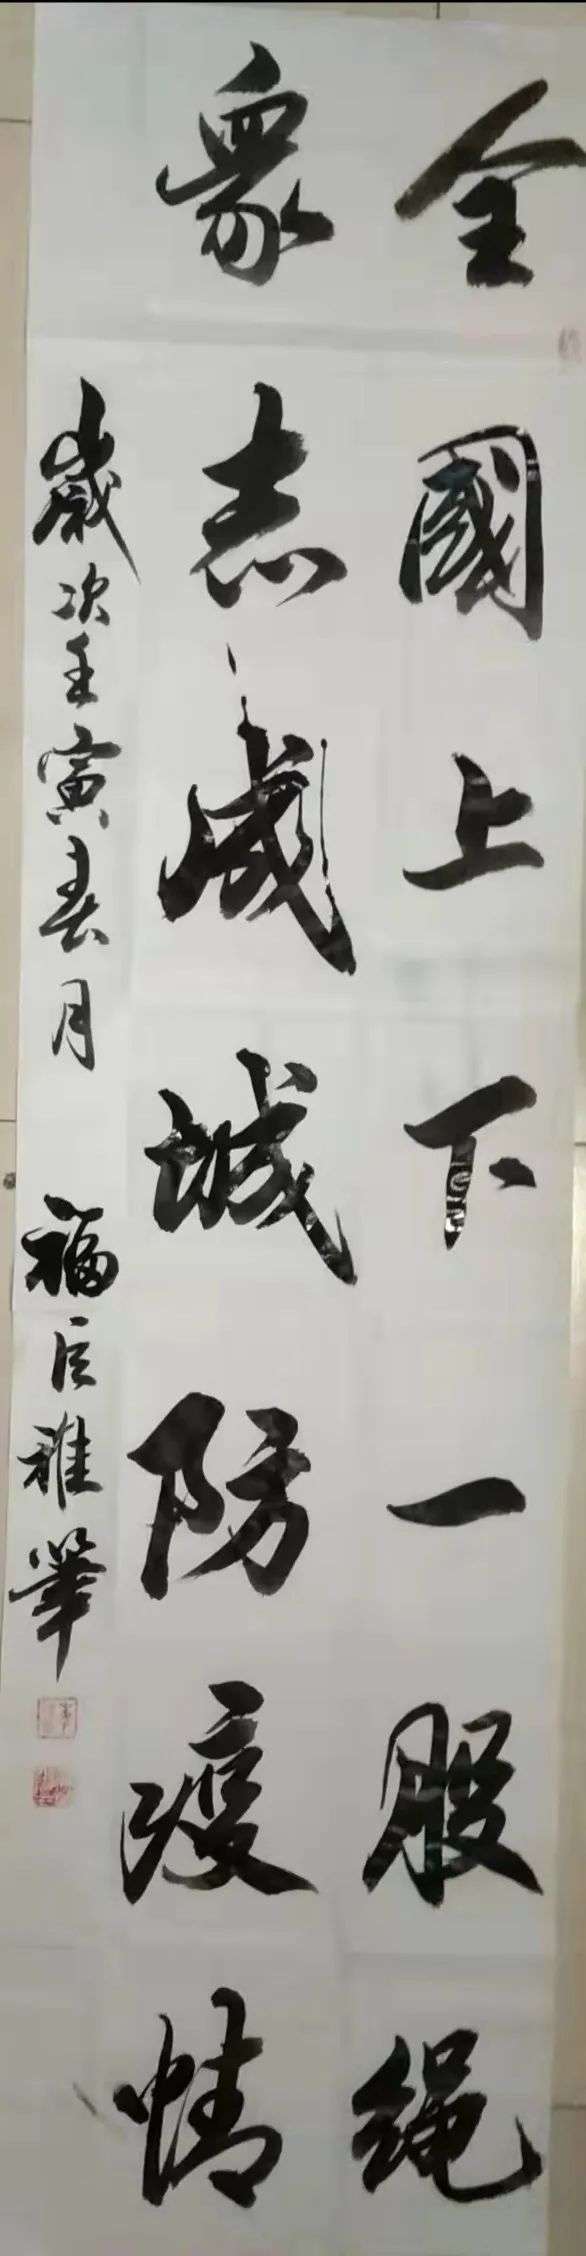 全國上下一股绳
眾志成城防疫情
歲次壬寅春月 福臣雅筆